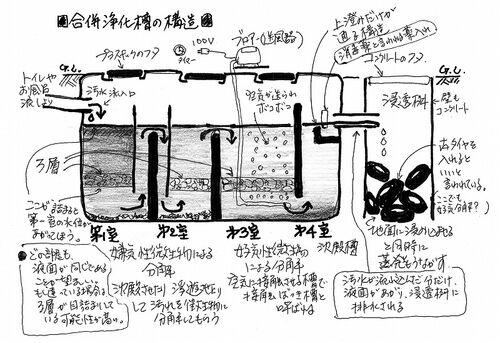 合併浄化槽の構造
プラスチックのフタ
100V
タイマー
ブロアー(送風器)
上澄みだけが
通る構造
消毒薬といわれる薬入れ
コンクリートのフタ
G.L.
G.L.
トイレや
お風呂
流しより
汚水流入口
空気が送られ
ボコボコ
浸透桝
壁も
コンクリート
古タイヤを
入れると
いいと
言われている。
ここでも
好気分解?
ろ層
ここが詰まると
第一室の水位が
あがってしまう。
第1室
第2室
第3室
第4室
沈殿槽
地面に浸み込ませる
と同時に
蒸発もうながす
どの部屋も
液面が同じである
ことが望ましい
もし違っている場合は
ろ層が目詰まりして
いる可能性が高い。
嫌気性微生物による
分解
沈殿させたり浮遊させたり
して汚れを微生物に
分解してもらう
好気性微生物
による分解
空気に接触させる槽で
接触ばっき槽と
呼ばれる
汚水が流れ込んだ分だけ、
液面があがり、浸透桝に
排水される